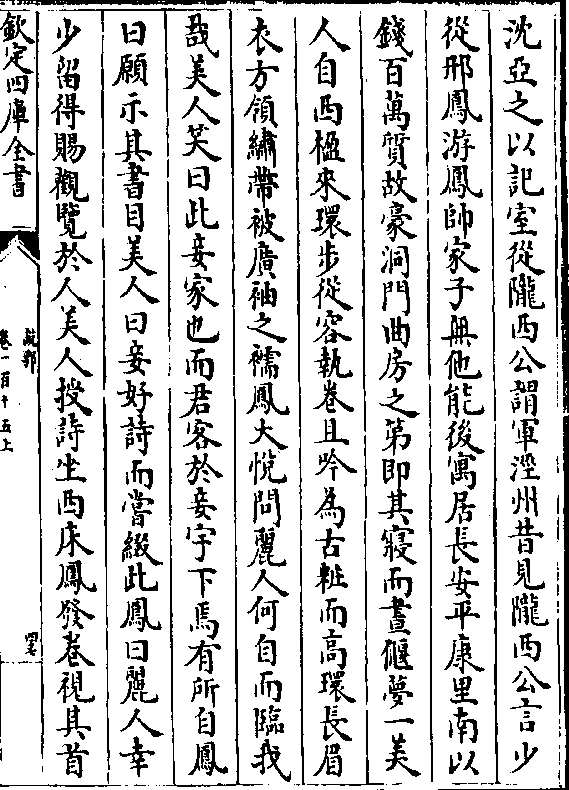 沈亞之以記室從隴西公謂軍涇州昔見隴西公言少
從邢鳳游鳳帥家子無他能後寓居長安平康里南以
錢百萬質故豪洞門曲房之第即其寢而晝偃夢一美
人自西楹來環步從容執卷且吟為古粧而高環長眉
衣方領繡帶被廣袖之襦鳳大悅問麗人何自而臨我
哉美人笑曰此妾家也而君客於妾宇下焉有所自鳳
曰願示其書目美人曰妾好詩而嘗綴此鳳曰麗人幸
少留得賜觀覽於人美人授詩坐西床鳳發卷視其首
欽定四庫全書
說郛
卷一百十五上